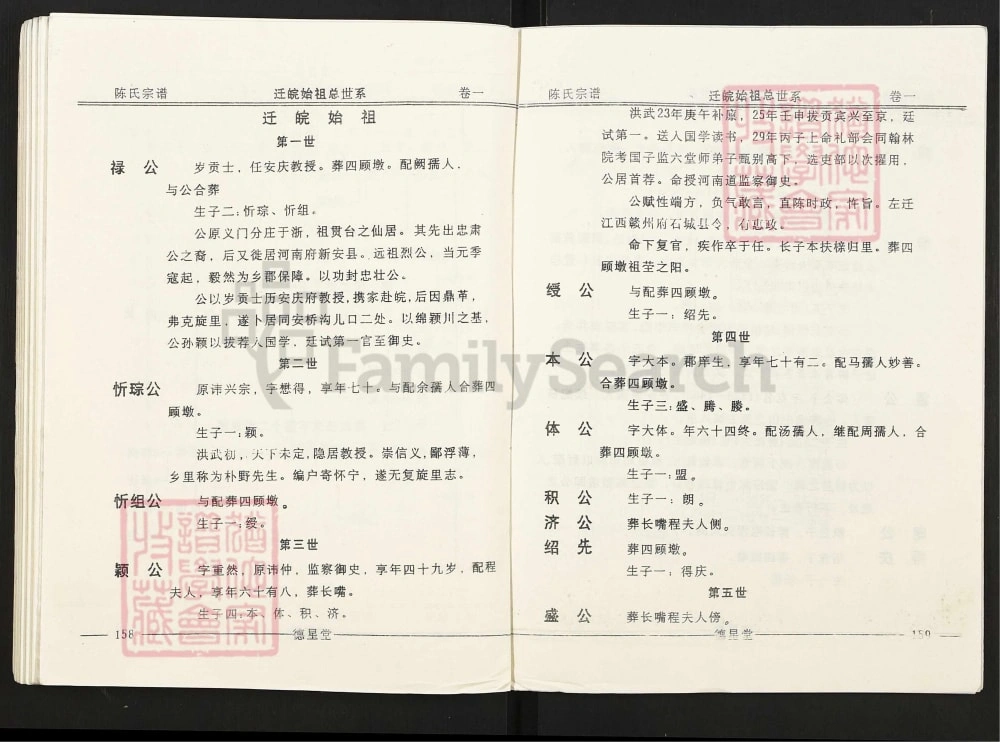 陈氏宗谱 迁皖始祖总世系 卷一
迁皖始祖
第一世
禄公 岁贡士，任安庆教授。葬四顾墩。配阙孺人，
与公合葬
生子二：忻琮、忻组。
公原义门分庄于浙，祖贯台之仙居。其先出忠肃
公之裔，后又徙居河南府新安县。远祖烈公，当元季
寇起，毅然为乡郡保障。以功封忠壮公。
公以岁贡士历安庆府教授，携家赴皖，后因鼎革，
弗克旋里，遂卜居同安桥沟儿口二处。以绵颖川之基，
公孙颖以拔荐入国学，廷试第一官至御史。
第二世
忻琮公 原讳兴宗，字懋得，享年七十。与配余孺人合葬四
顾墩。
生子一：颖。
洪武初，天下未定，隐居教授。崇信义，鄙浮薄，
乡里称为朴野先生。编户寄怀宁，遂无复旋里志。
忻组公 与配葬四顾墩。
生子一：绶。
第三世
颖公 字重然，原讳仲，监察御史，享年四十九岁，配程
夫人，享年六十有八，葬长嘴。
生子四：本、体、积、济。
158 德星堂
陈氏宗谱 迁皖始祖总世系 卷一
洪武23年庚午补廪，25年壬申拔贡宾兴至京，廷
试第一。送入国学读书，29年丙子上命礼部会同翰林
院考国子监六堂师弟子甄别高下，选吏部以次擢用，
公居首荐。命授河南道监察御史。
公赋性端方，负气敢言，直陈时政，忤旨。左迁
江西赣州府石城县令，有惠政。
命下复官，疾作卒于任。长子本扶榇归里。葬四
顾墩祖茔之阳。
绶公 与配葬四顾墩。
生子一：绍先。
第四世
本公 字大本。郡庠生，享年七十有二。配马孺人妙善。
合葬四顾墩。
生子三：盛、腾、媵。
体公 字大体。年六十四终。配汤孺人，继配周孺人，合
葬四顾墩。
生子一：盟。
积公 生子一：朗。
济公 葬长嘴程夫人侧。
绍先 葬四顾墩。
生子一：得庆。
第五世
盛公 葬长嘴程夫人傍。
德星堂 159
FamilySearch